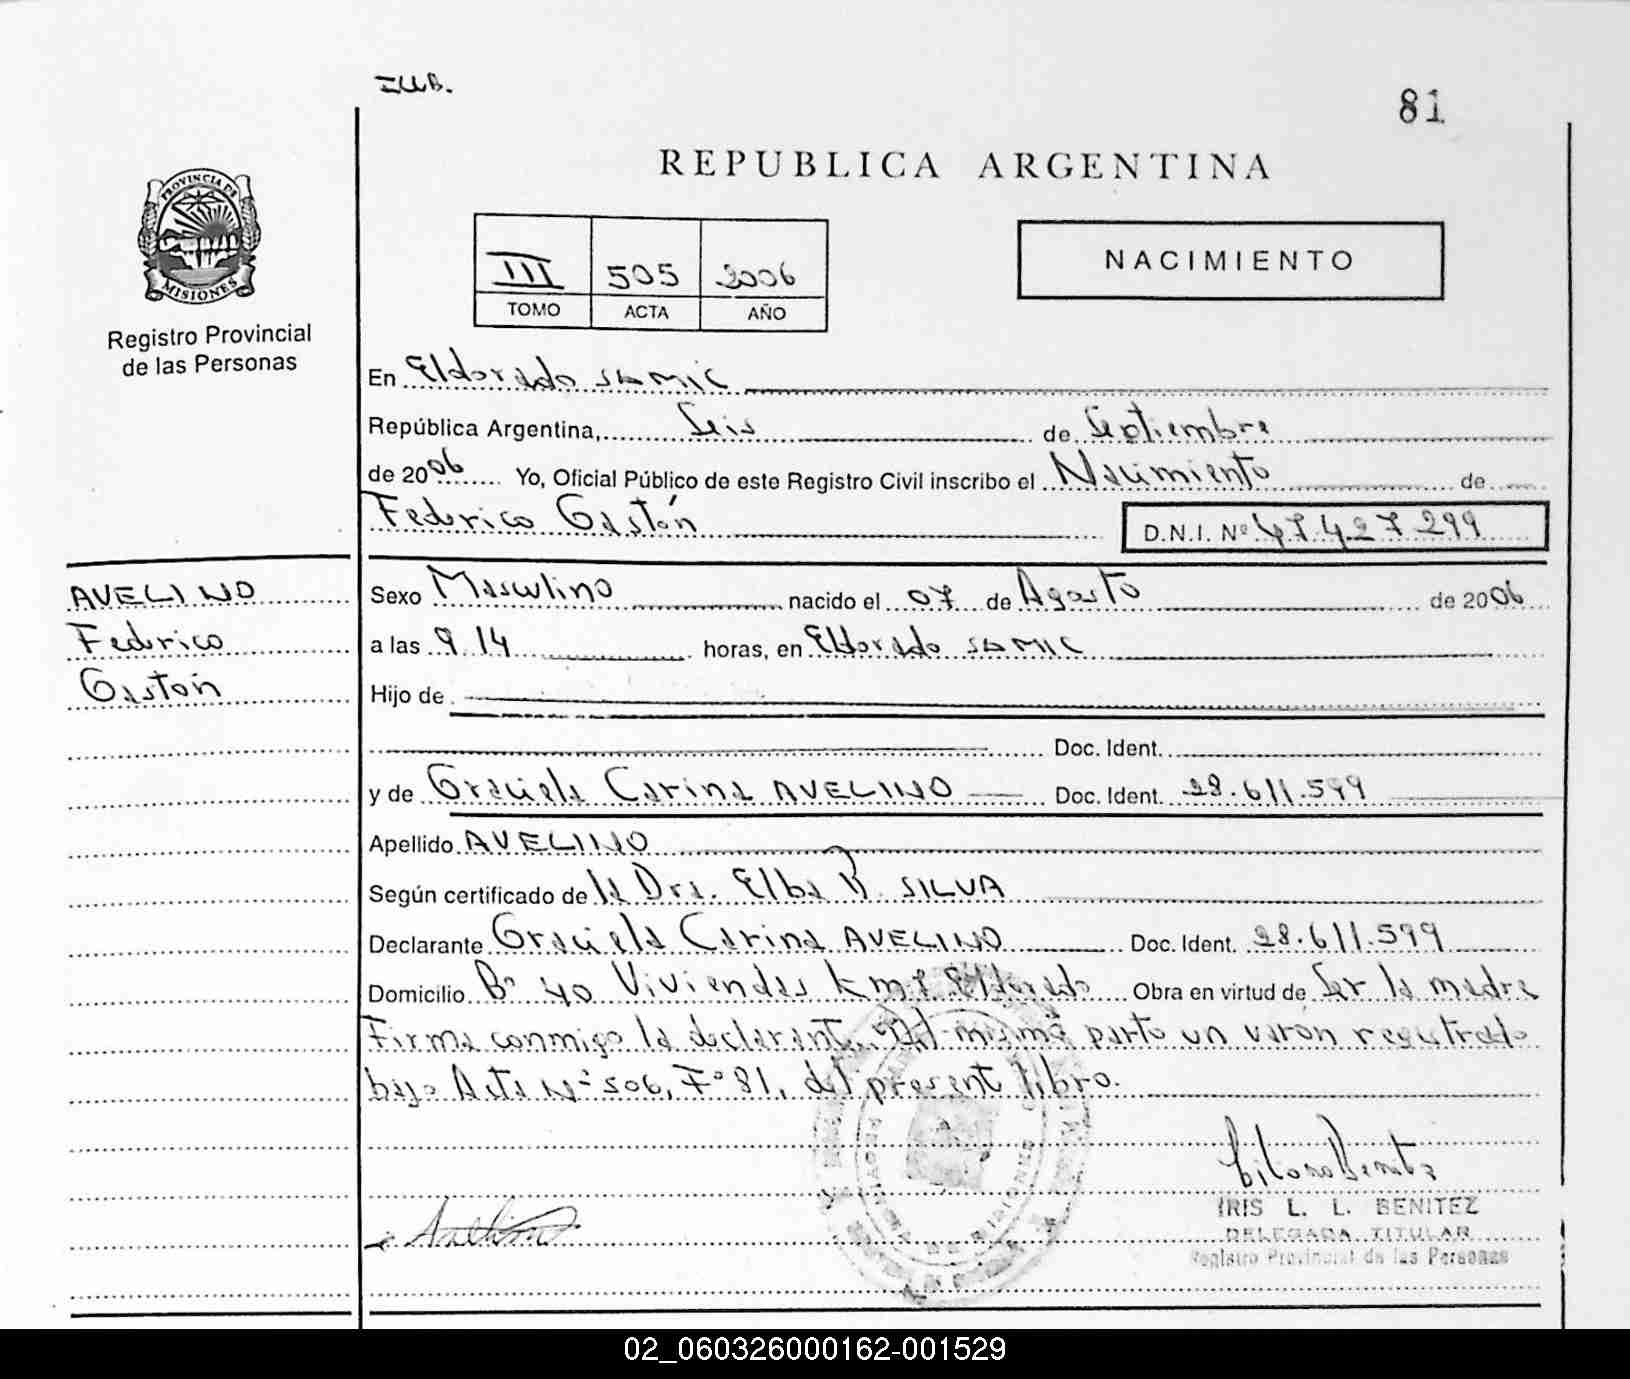 I.U.B.
81
REPUBLICA ARGENTINA
PROVINCIA DE
MISIONES
Registro Provincial
de las Personas
III 505 2006
TOMO ACTA AÑO
NACIMIENTO
En Eldorado SAMIC
República Argentina, Seis de Septiembre
de 2006 Yo, Oficial Público de este Registro Civil inscribo el Nacimiento de
Federico Gastón D.N.I. Nº 47.427.299
AVELINO
Federico
Gastón
Sexo Masculino nacido el 07 de Agosto de 2006
a las 9.14 horas, en Eldorado SAMIC
Hijo de
Doc. Ident.
y de Graciela Carina AVELINO Doc. Ident. 28.611.599
Apellido AVELINO
Según certificado de la Dra. Elba R. SILVA
Declarante Graciela Carina AVELINO Doc. Ident. 28.611.599
Domicilio Bº 40 Viviendas km Eldorado Obra en virtud de Ser la madre
Firma conmigo la declarante. Del mismo parto un varón registrado
bajo Acta Nº 506, Fº 81, del presente libro.
IRIS L. L. BENITEZ
DELEGADA TITULAR
Registro Provincial de las Personas
02_060326000162-001529